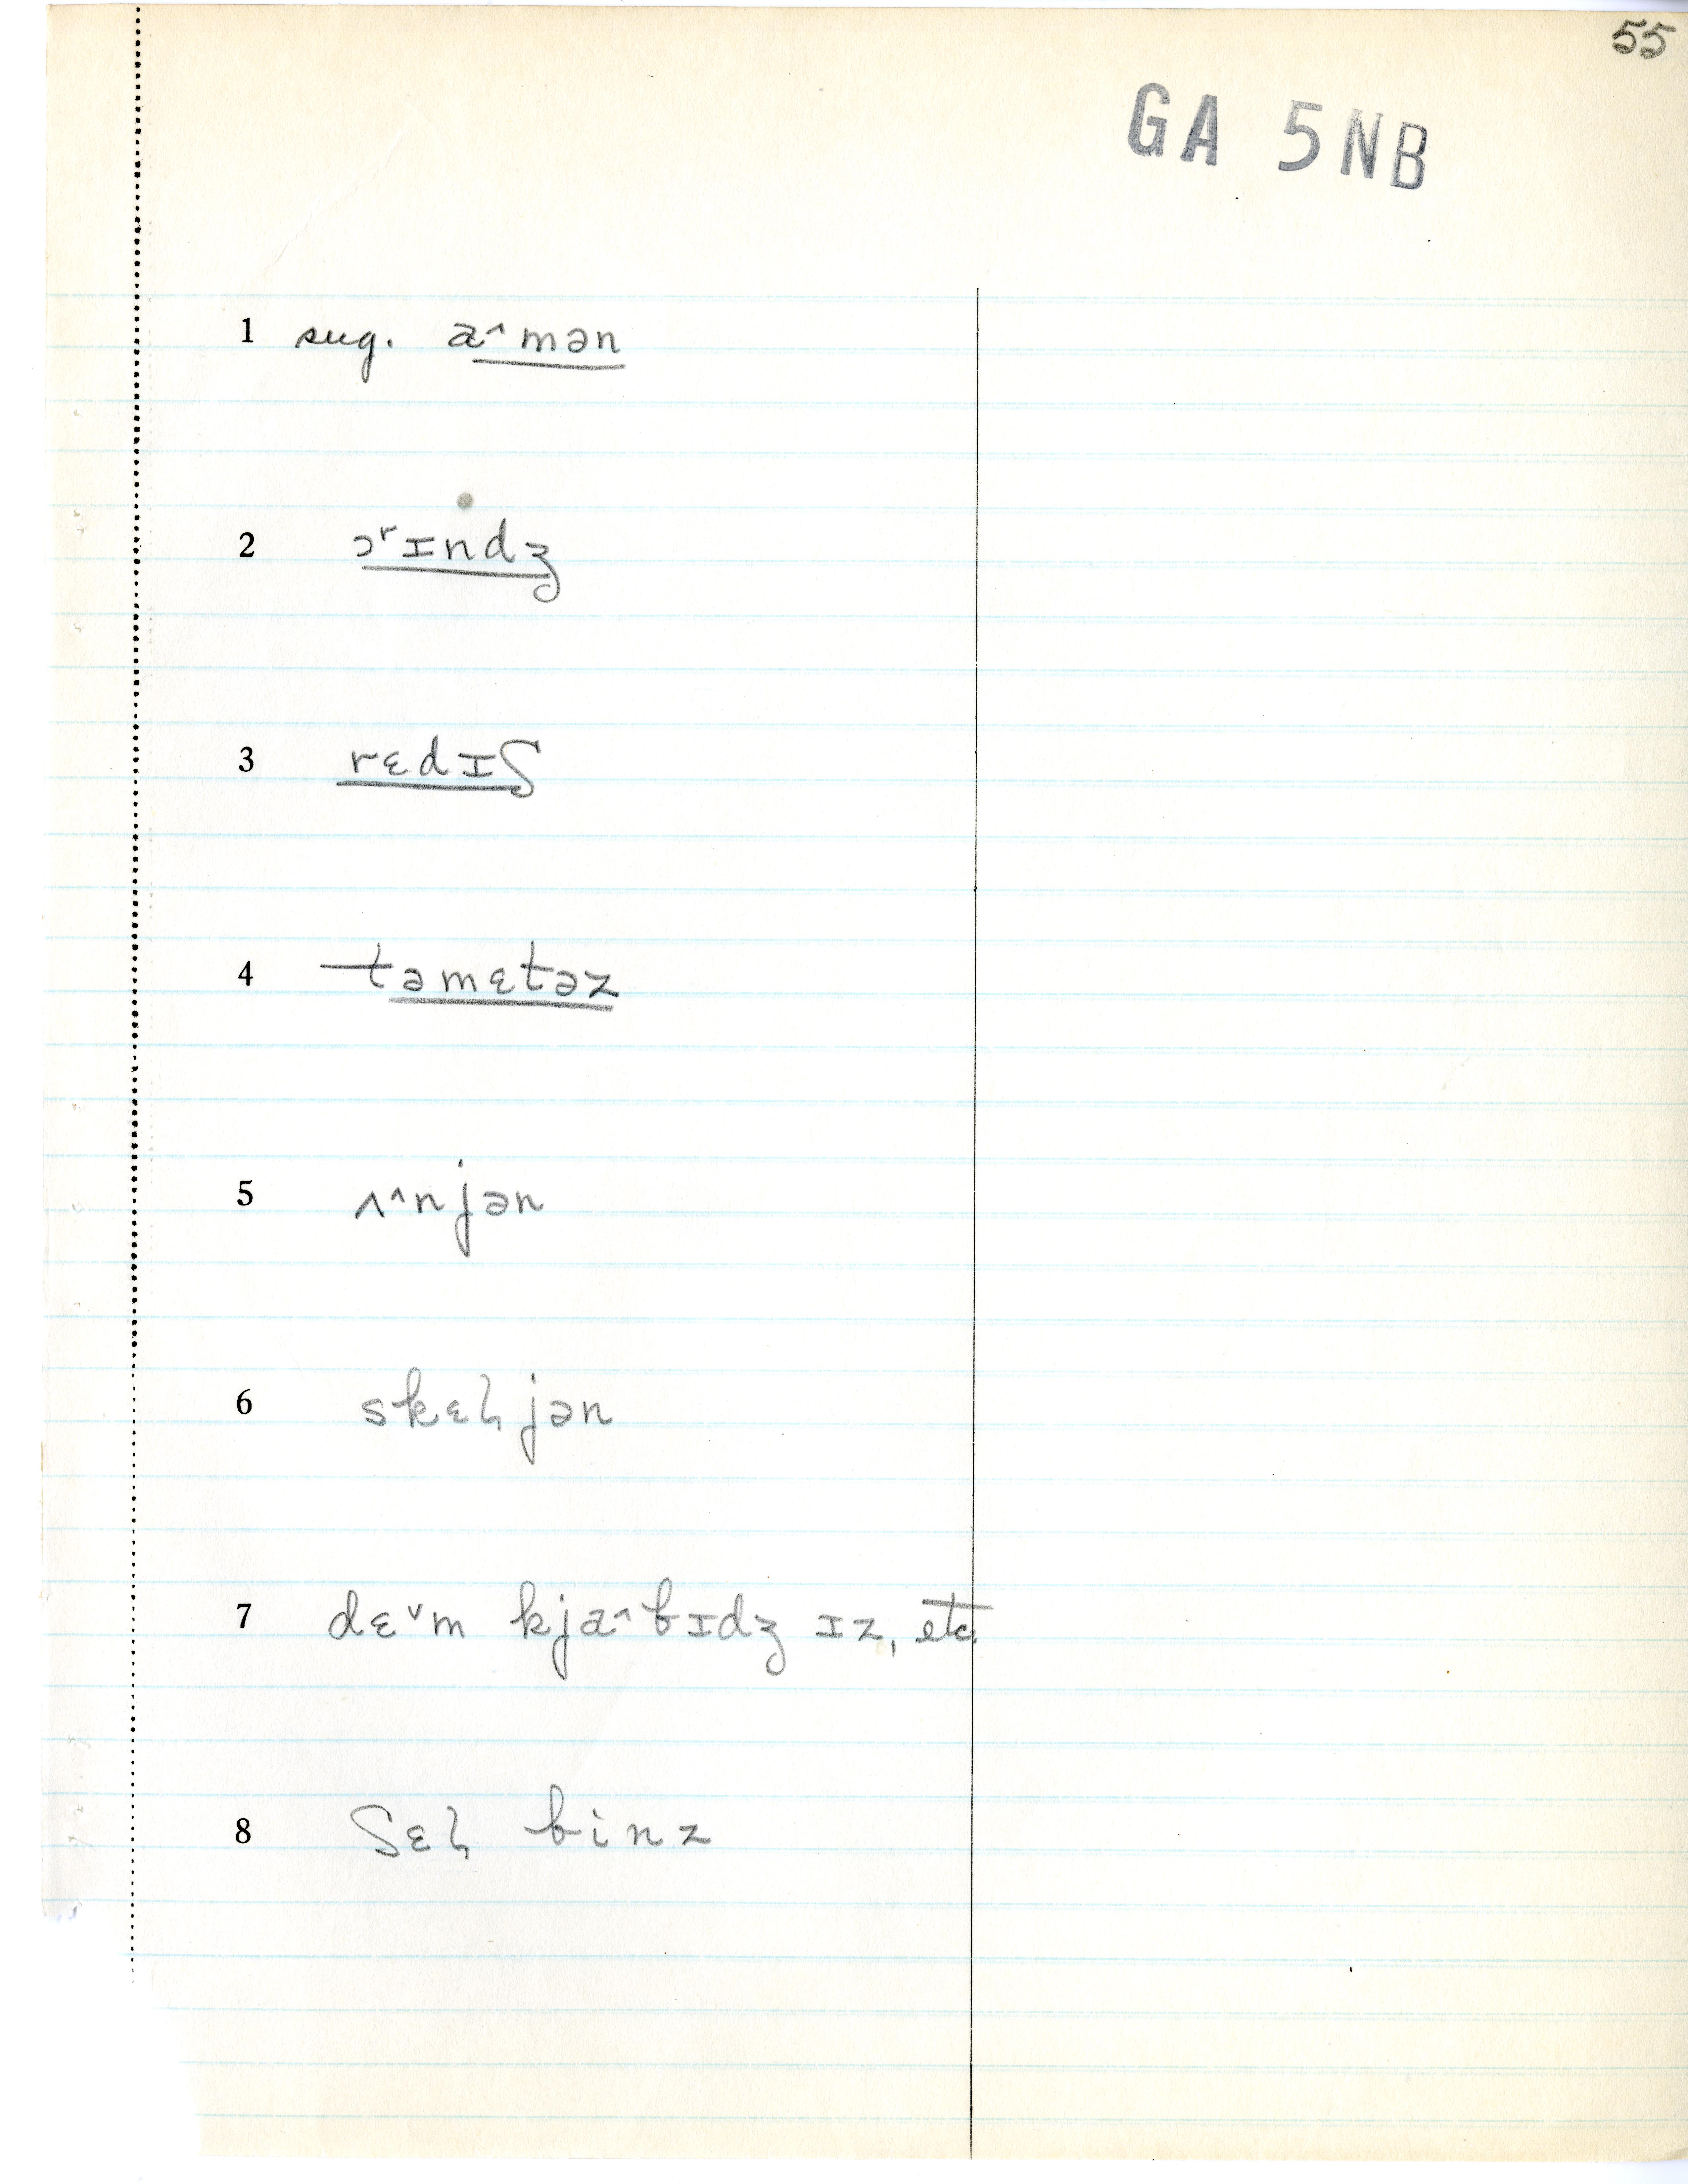 55
GA 5NB
1 sug. a^mən
2 ɔʳɪndʒ
3 rɛdɪʃ
4 təmɛtəz
5 ʌ^njən
6 skɛɫjən
7 dɛˇm kja^bɪdʒ ɪz, etc.
8 ʃɛɫ binz